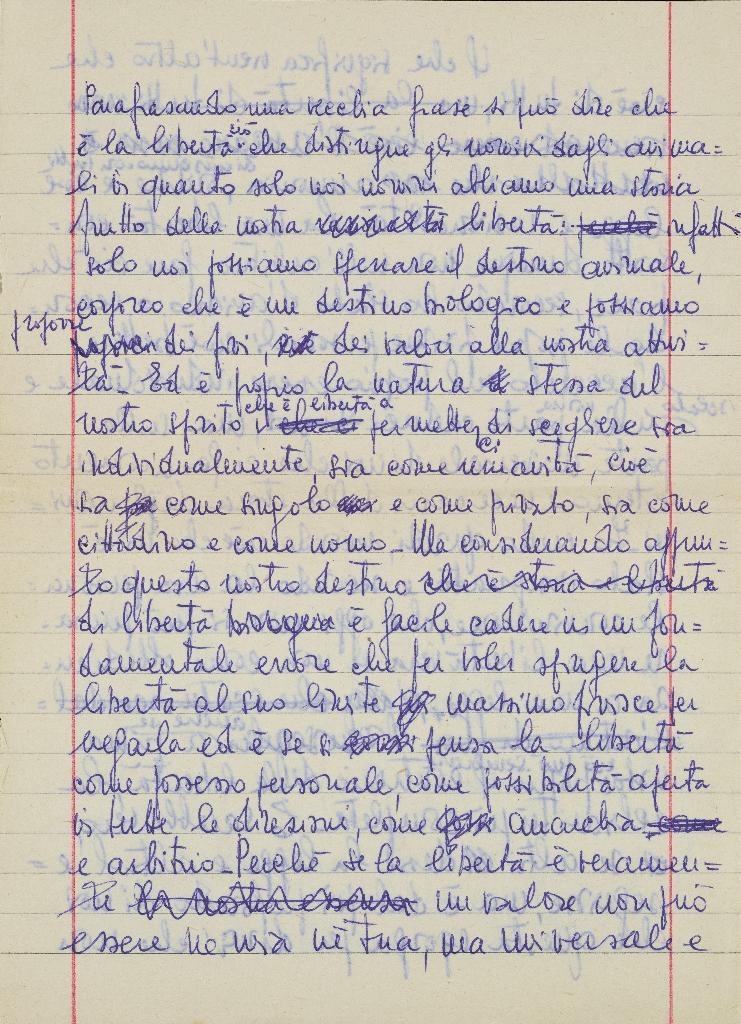 Parafrasando una vecchia frase si può dire che
è la libertà ciò che distingue gli uomini dagli anima=
li in quanto solo noi uomini abbiamo una storia
frutto della nostra libertà: perché infatti
solo noi possiamo spezzare il destino animale,
corporeo che è un destino biologico e possiamo
proporre
dei fini, dei valori alla nostra attivi=
tà - Ed è proprio la natura stessa del
nostro spirito che è libertà a
che ci permetterci di scegliere sia
individualmente, sia come umanità, cioè
sia come singolo e come privato, sia come
cittadino e come uomo - Ma considerando appun=
to questo nostro destino che è storia e libertà
di libertà bisogna è facile cadere in un fon=
damentale errore che per voler spingere la
libertà al suo limite massimo finisce per
negarla ed è se si pensa la libertà
come possesso personale, come possibilità aperta
in tutte le direzioni, come anarchia come
e arbitrio - Perché se la libertà è veramen=
te la nostra essenza un valore non può
essere né mia né tua, ma universale e